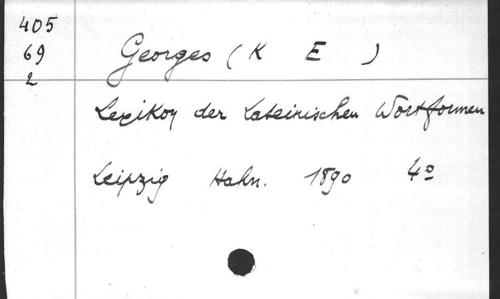 405
69 Georges ( K E )
2
Lexikon der Lateinischen Wortformen
Leipzig Hahn. 1890 4º